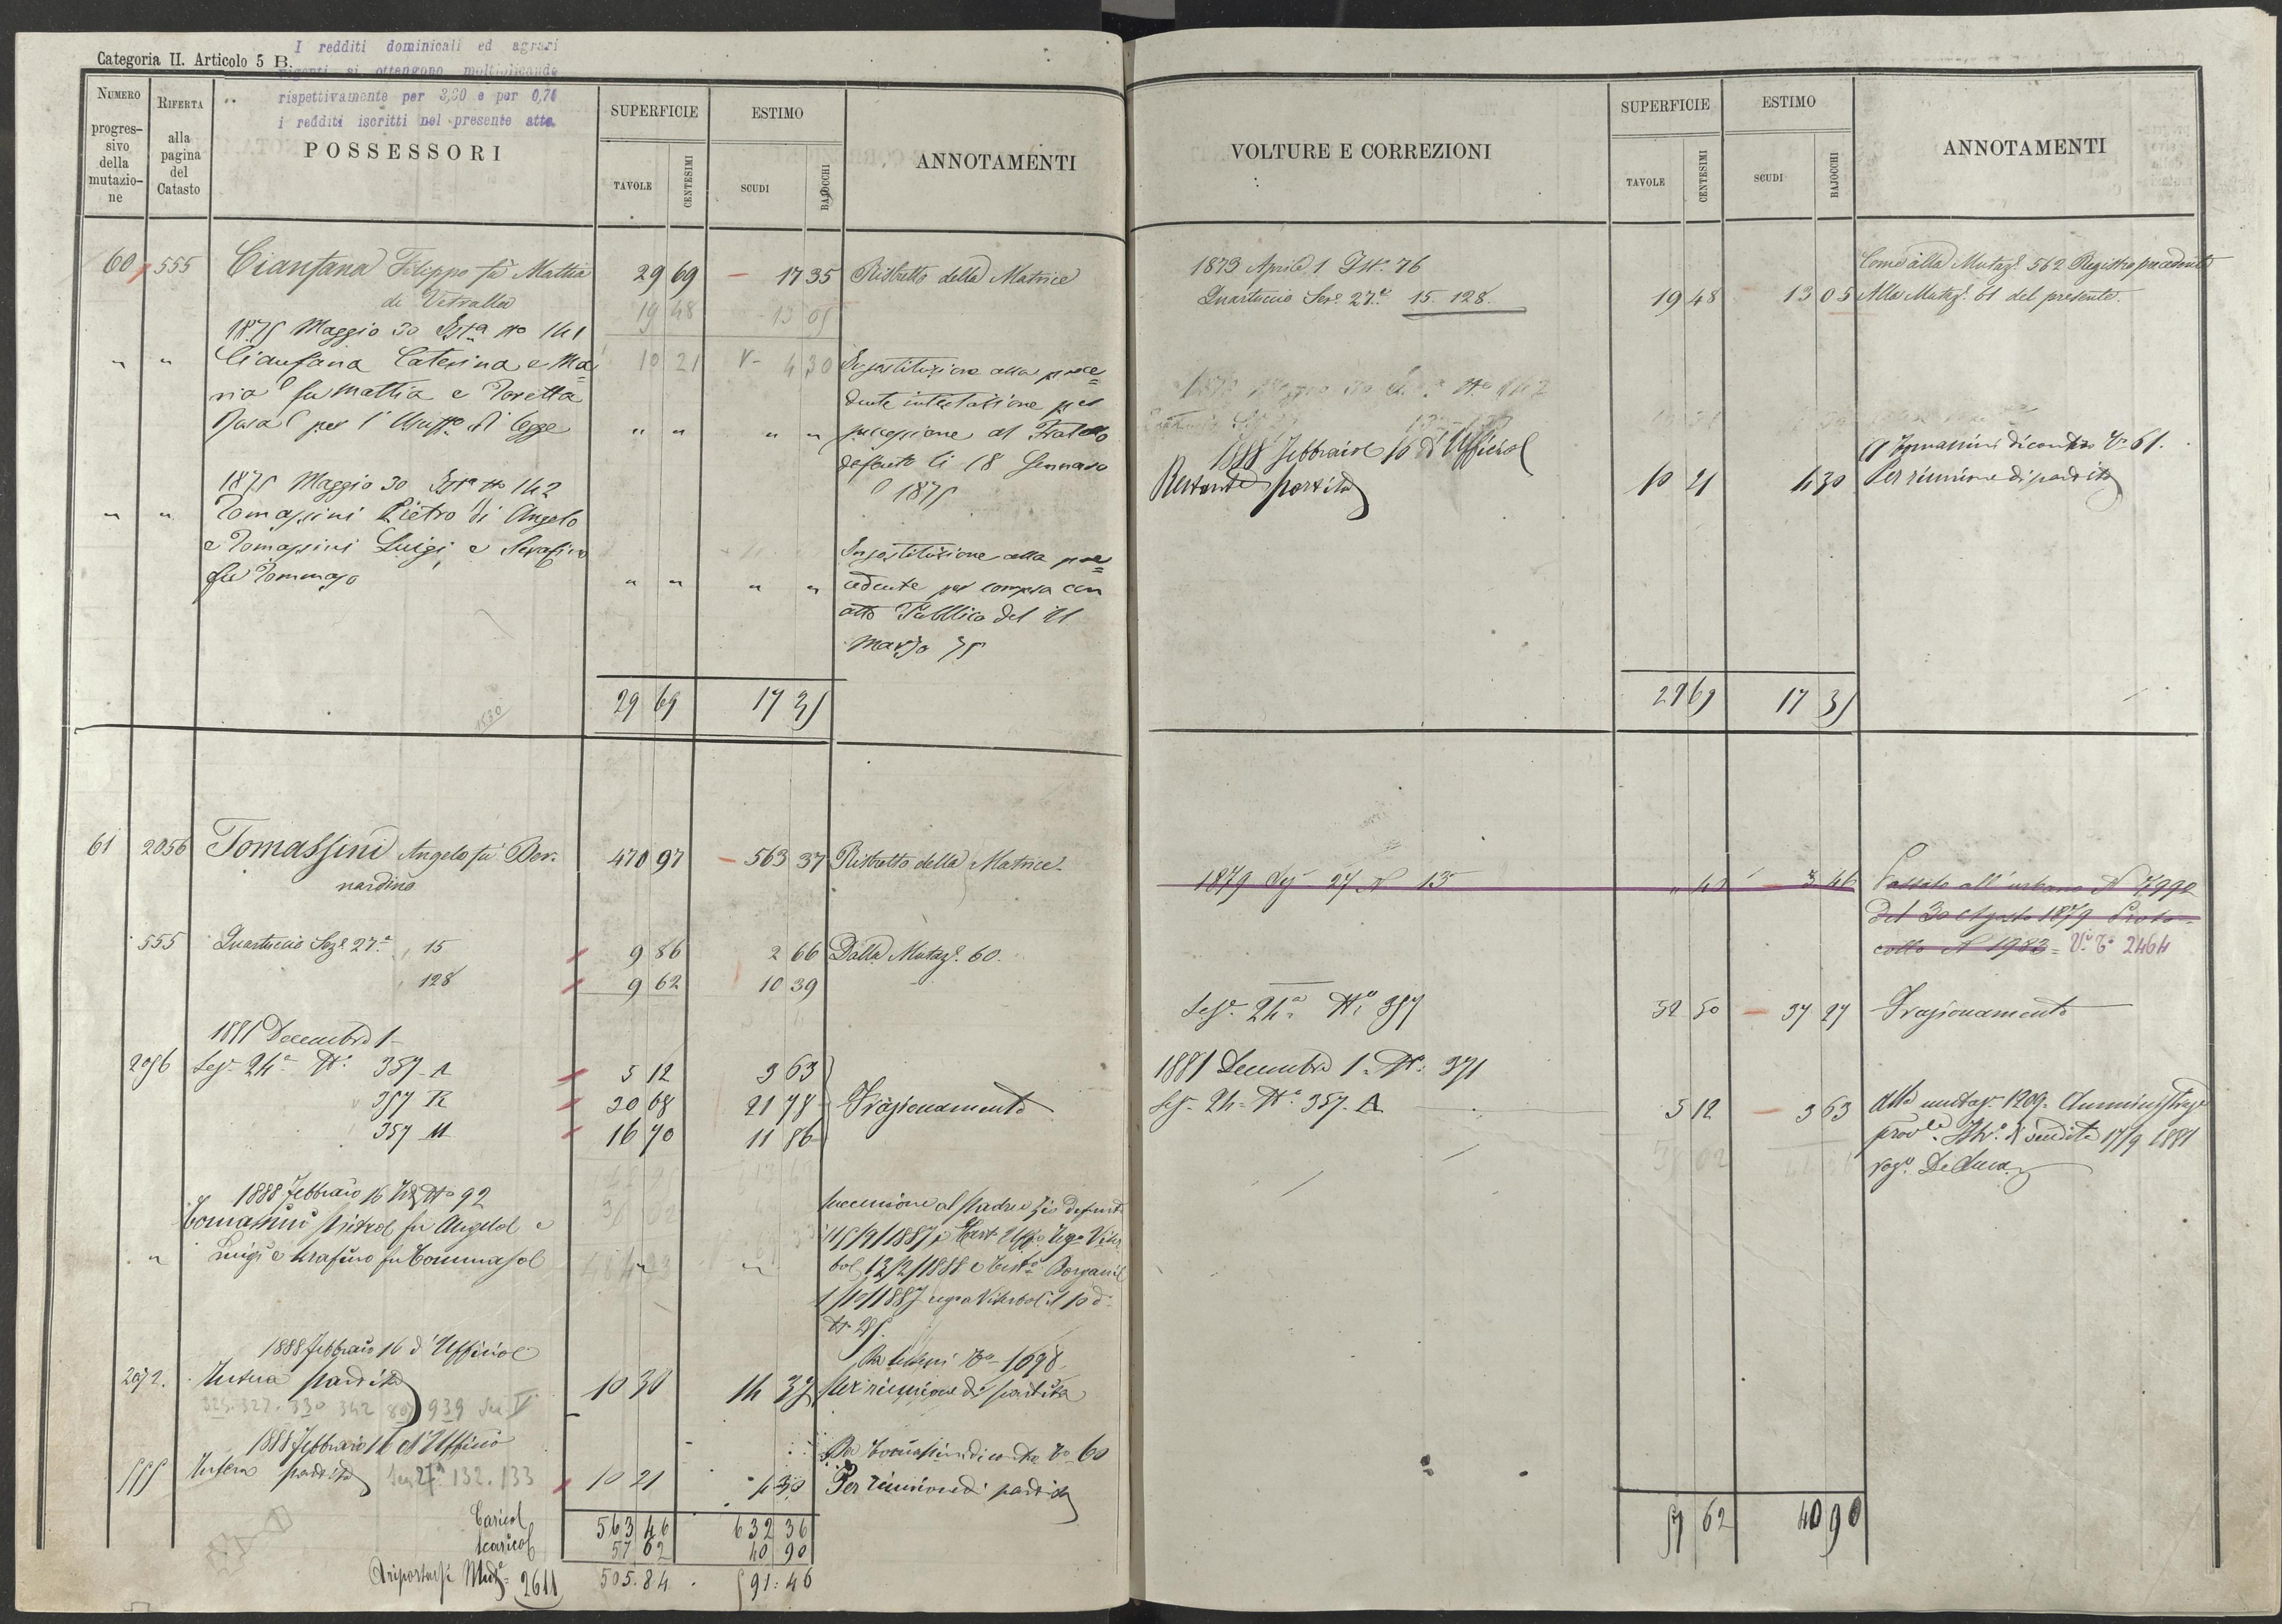 Categoria II. Articolo 5 B.
I redditi dominicali ed agrari
vigenti si ottengono moltiplicando
rispettivamente per 3,30 e per 0,74
i redditi iscritti nel presente atto.
NUMERO progressivo della mutazione
RIFERTA alla pagina del Catasto
POSSESSORI
SUPERFICIE
TAVOLE
CENTESIMI
ESTIMO
SCUDI
BAJOCCHI
ANNOTAMENTI
60 555 Cianfana Filippo fu Mattia 29 69 – 17 35 Ristretto della Matrice
di Vetralla 19 48 - 13 05
1875 Maggio 30 141
" " Cianfana Caterina e Ma= 10 21 4 30 In sostituzione alla prece=
ria fu Mattia e dente intestazione per
Rosa per l' di legge " " " " successione al Fratello
defunto li 18 Gennaio
1875 Maggio 30 142 1875
" " Tomassini Pietro di Angelo
e Tomassini Luigi, e Serafino In sostituzione alla pre=
fu Tommaso " " " " cedente per compra con
atto Pubblico del 21
Marzo 75
29 69 17 35
1530
61 2056 Tomassini Angelo fu Ber- 470 97 – 563 37 Ristretto della Matrice
nardino
555 Quartuccio Seze 27.a 15 9 86 2 66 Dalla Mutaze. 60.
128 9 62 10 39
1881 Decembre 1
2056 Seze 24a No. 357 A 5 12 3 63
357 R 20 68 21 78 Frazionamento
357 M 16 70 11 86
1888 Febbraio 16 No 92 Successione al padre e zio defunto
Tomassini Pietro fu Angelo e
" Luigi e Serafino fu Tommaso " "
1888 Febbraio 16 d'Ufficio
2072. Intera partita 10 30 14 37 Per riunione di partita
325. 327. 330 342 939
1888 Febbraio 16 d'Ufficio Da Tomassini di contro 60
555 Intera partita Sez 27a 132. 133 10 21 4 30 Per riunione di partita
Carico 563 46 632 36
Scarico 57 62 40 90
A riportarsi Mute 2611 505.84. 591:46
VOLTURE E CORREZIONI
SUPERFICIE
TAVOLE
CENTESIMI
ESTIMO
SCUDI
BAJOCCHI
ANNOTAMENTI
1873 Aprile 1 76 Come alla Mutaze. 562 Registro precedente
Quartuccio Seze. 27.a 15. 128. 19 48 13 05 Alla Mutaze. 61 del presente.
1888 Febbraio 16 d'Ufficio A Tomassini di contro 61.
Restante partita 10 21 4 30 Per riunione di partita
29 69 17 35
1879 Seze 27 N 13 3 46 Passato all'urbano N
del 30 Agosto 1879 Proto-
collo N 1983 = 2464
Seze. 24a No 357 52 50 – 37 27 Frazionamento
1881 Decembre 1. No. 371
Seze. 24a No. 357. A 5 12 – 3 63 Alla mutaze. 1209. Amministraze
vendita 17/9 1881
De Luca
57 62 40 90